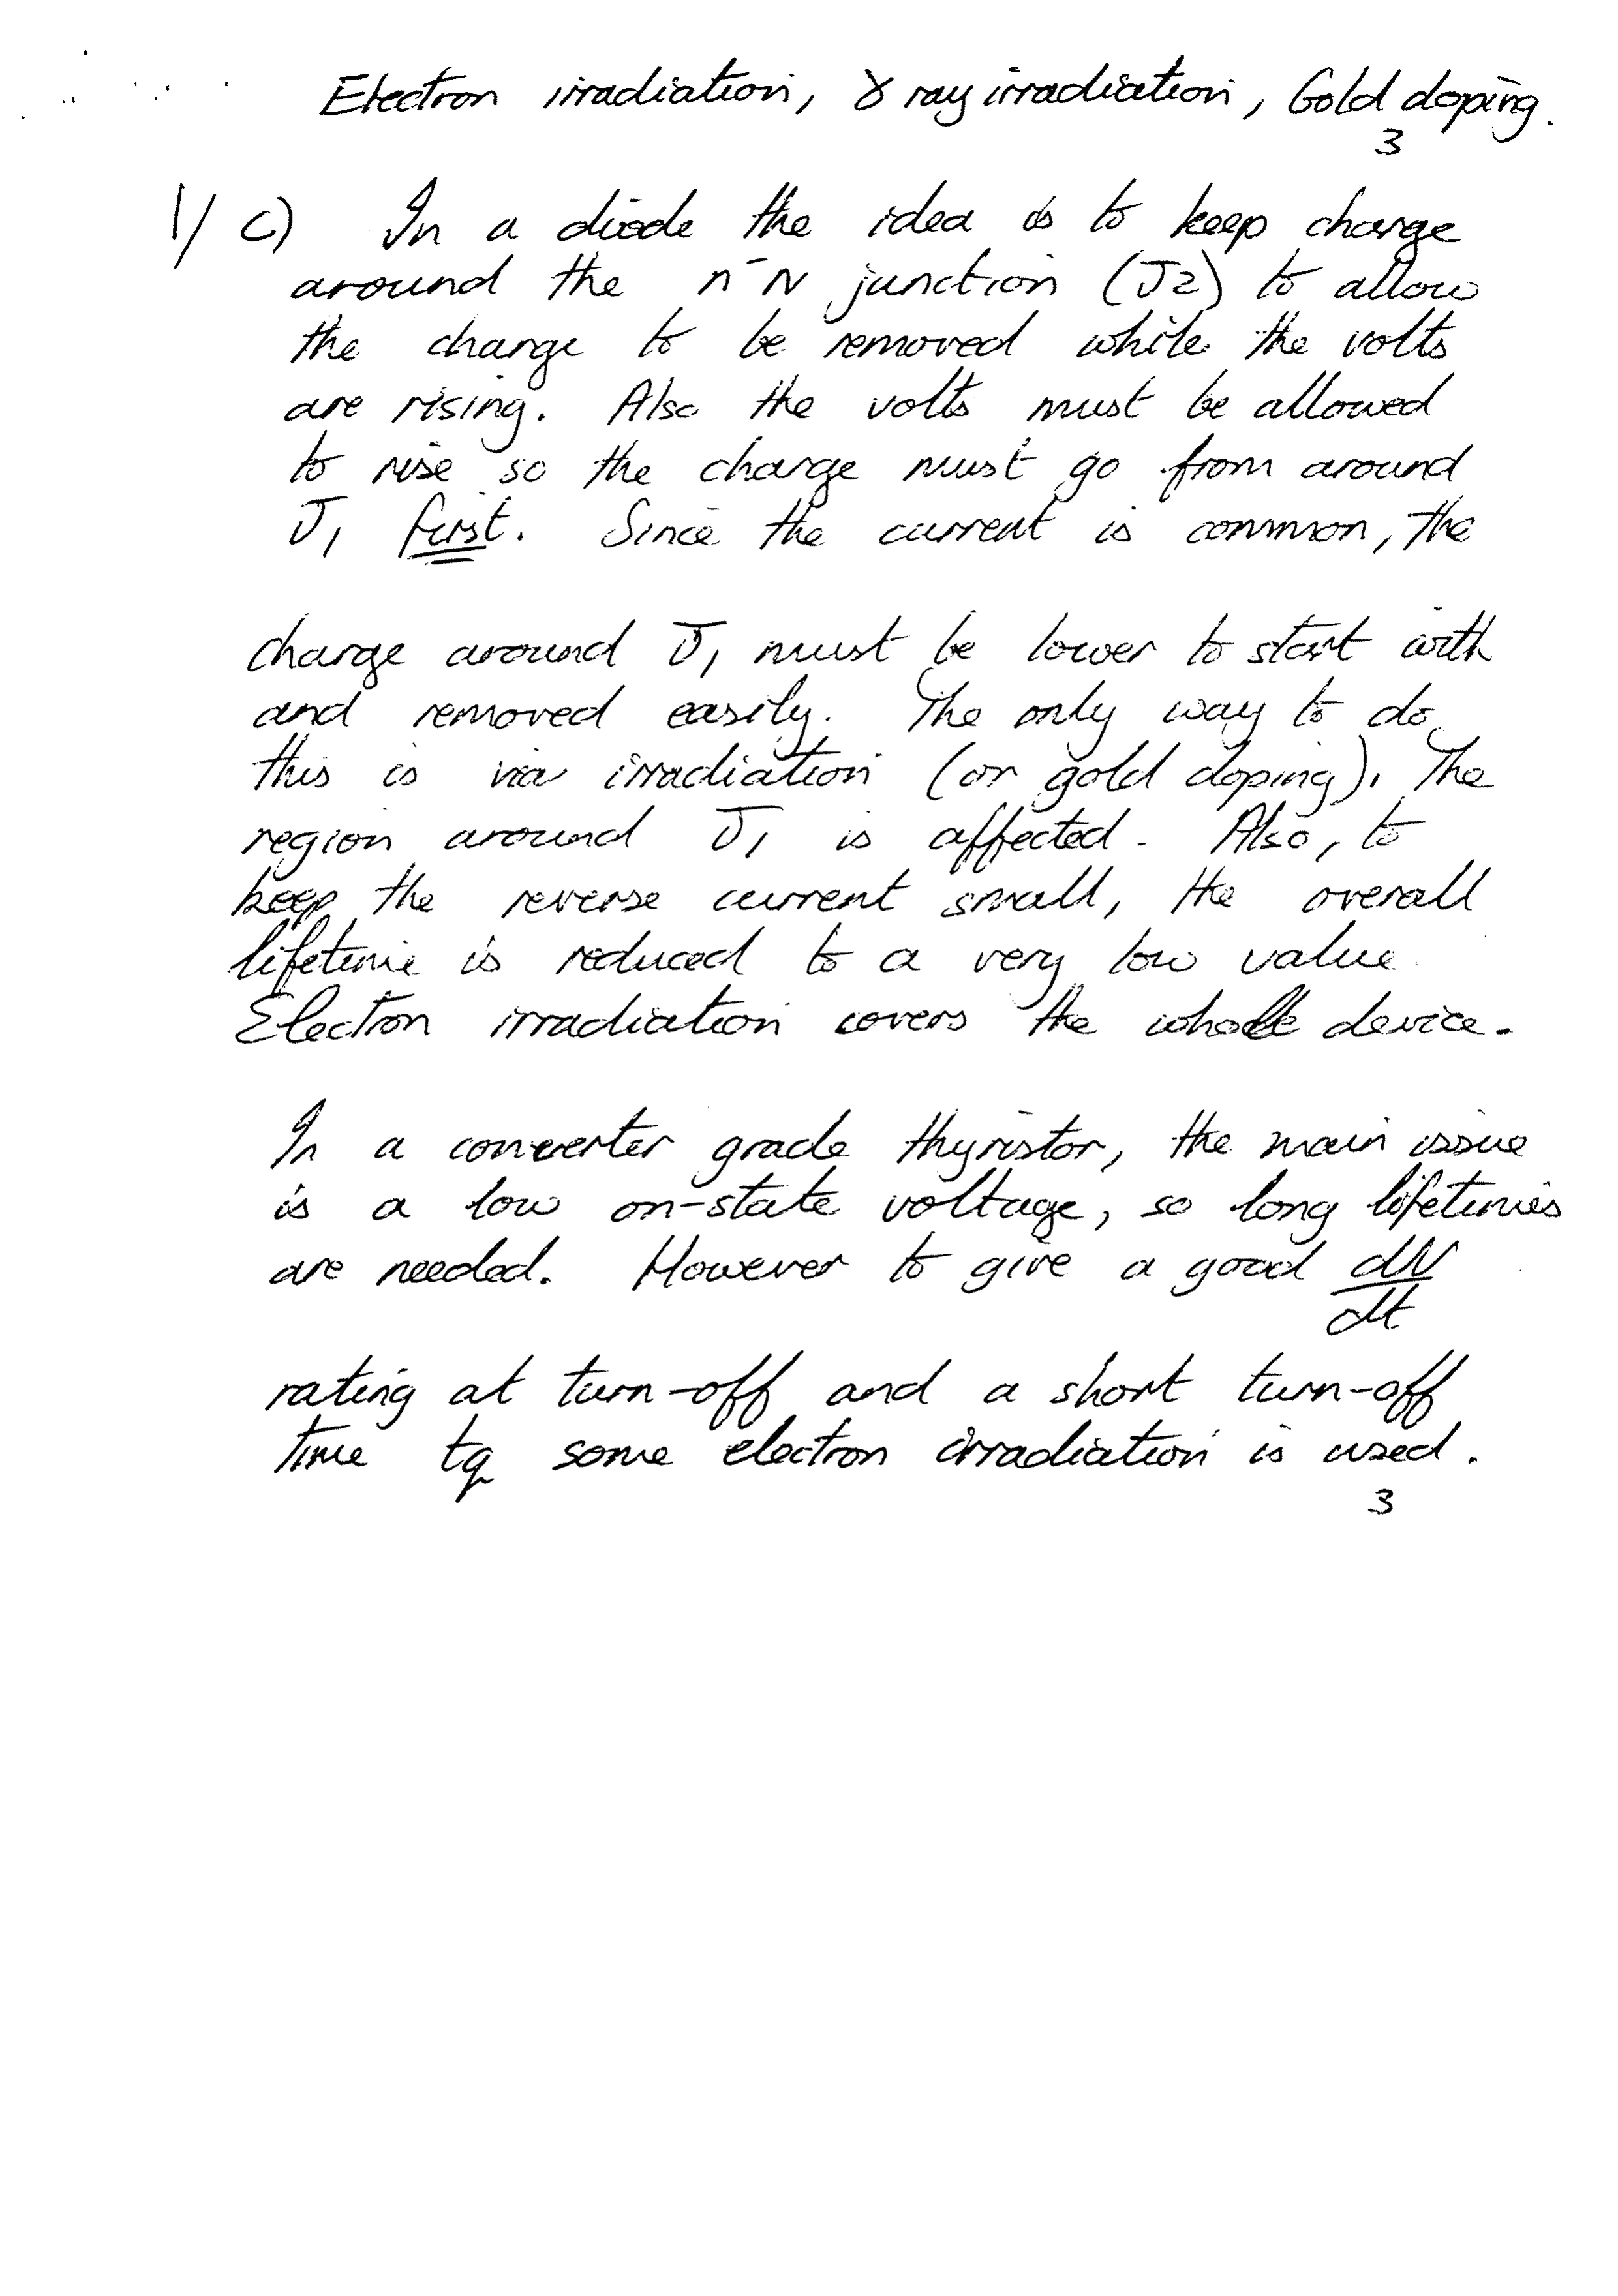 Electron irradiation, γ ray irradiation, Gold doping.
3
1/ c) In a diode the idea is to keep charge
around the n⁻N junction (J2) to allow
the charge to be removed while the volts
are rising. Also the volts must be allowed
to rise so the charge must go from around
J1 first. Since the current is common, the
charge around J1 must be lower to start with
and removed easily. The only way to do
this is via irradiation (or gold doping). The
region around J1 is affected. Also, to
keep the reverse current small, the overall
lifetime is reduced to a very low value.
Electron irradiation covers the whole device.
In a converter grade thyristor, the main issue
is a low on-state voltage, so long lifetimes
are needed. However to give a good dV/dt
rating at turn-off and a short turn-off
time tq some electron irradiation is used.
3